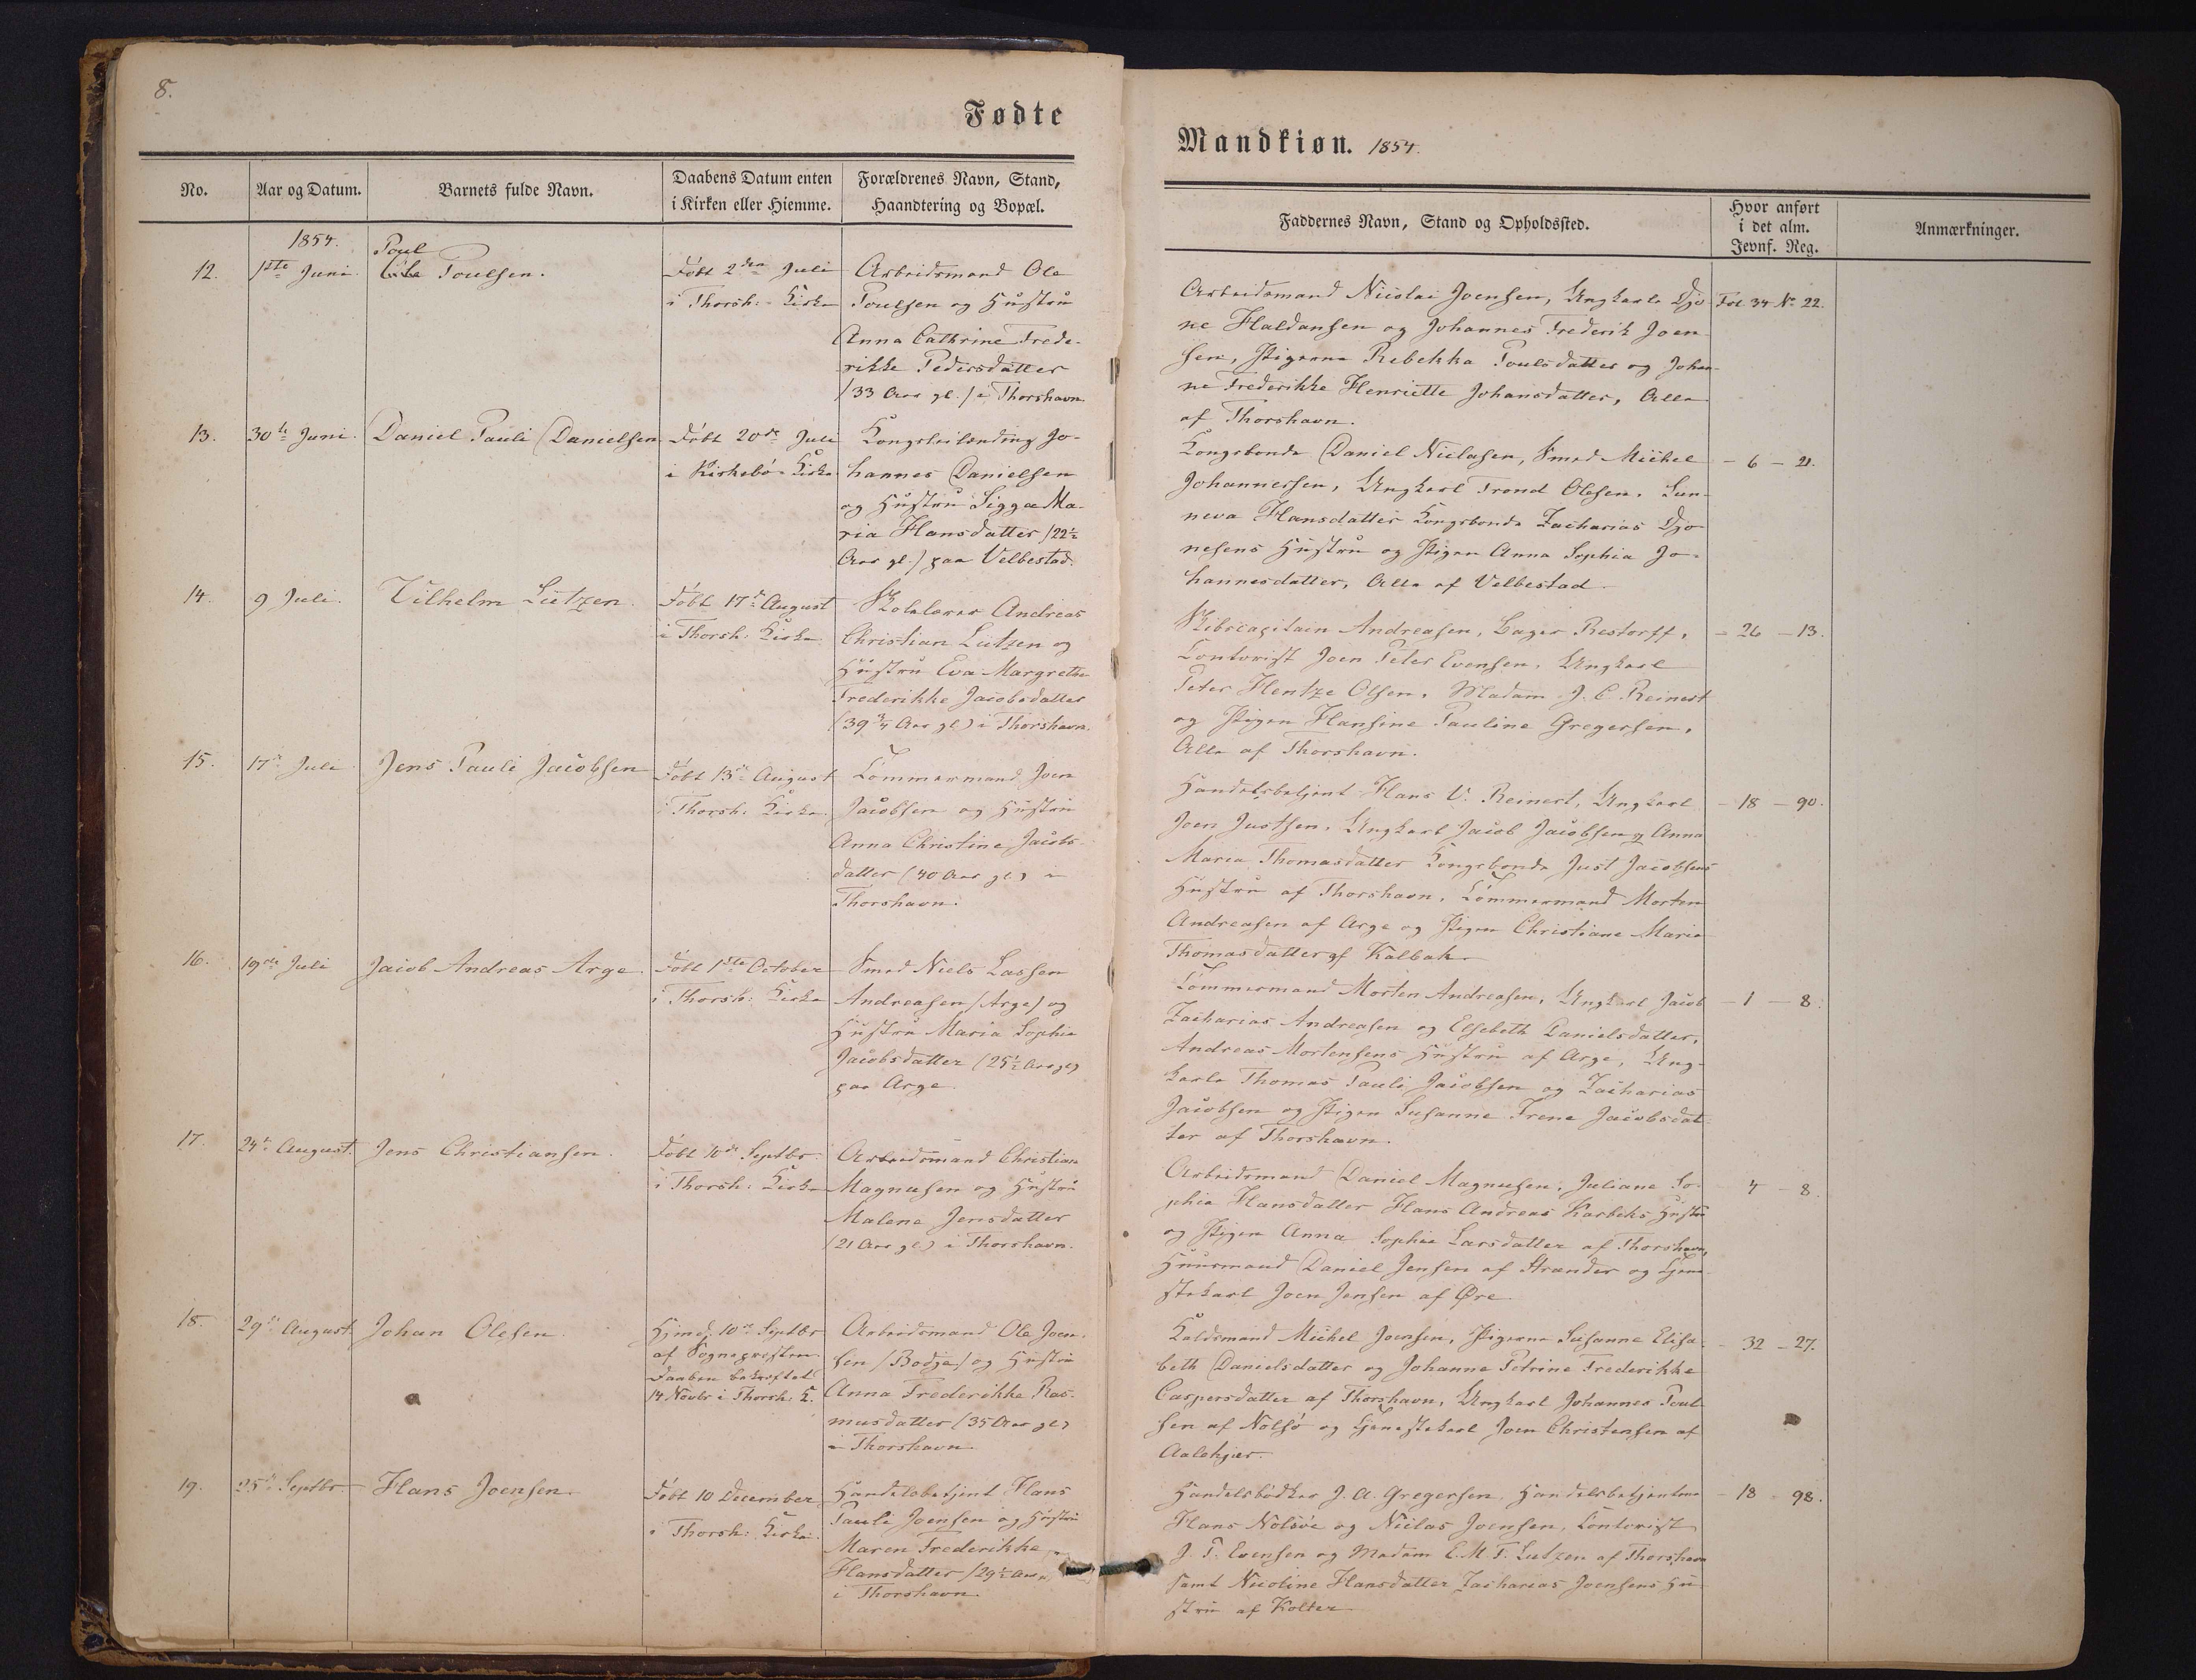 8.
Fødte
No.
Aar og Datum.
Barnets fulde Navn.
Daabens Datum enten
i Kirken eller Hiemme.
Forældrenes Navn, Stand,
Haandtering og Bopæl.
1854.
12.
1ste Juni.
Poul
Poulsen.
Døbt 2den Juli
i Thorsh: Kirke
Arbeidsmand Ole
Poulsen og Hustru
Anna Cathrine Frede-
rikke Pedersdatter
/33 Aar gl./ i Thorshavn.
13.
30te Juni.
Daniel Pauli Danielsen
Døbt 20de Juli
i Kirkebø Kirke
Jo-
hannes Danielsen
og Hustru Sigga Ma-
ria Hansdatter /22½
Aar gl./ paa Velbestad.
14.
9 Juli.
Vilhelm Lützen.
Døbt 17de August
i Thorsh: Kirke
Skolelærer Andreas
Christian Lützen og
Hustru Eva Margrethe
Frederikke Jacobsdatter
(39¾ Aar gl.) i Thorshavn.
15.
17de Juli
Jens Pauli Jacobsen
Døbt 13de August
i Thorsh: Kirke
Tømmermand Joen
Jacobsen og Hustru
Anna Christine Jacobs-
datter (40 Aar gl.) i
Thorshavn.
16.
19de Juli
Jacob Andreas Arge.
Døbt 1ste October
i Thorsh: Kirke
Smed Niels Lassen
Andreasen /Arge/ og
Hustru Maria Sophie
Jacobsdatter (25½ Aar gl)
paa Arge.
17.
24de August.
Jens Christiansen.
Døbt 10de Septbr.
i Thorsh: Kirke
Arbeidsmand Christian
Magnusen og Hustru
Malene Jensdatter
(21 Aar gl.) i Thorshavn.
18.
29de August.
Johan Olesen.
Hjmd. 10de Septbr
af Sognepræsten
Daaben bekræftet
14 Novbr i Thorsh: K.
Arbeidsmand Ole Joen-
sen /Bodja/ og Hustru
Anna Frederikke Ras-
musdatter (35 Aar gl)
i Thorshavn.
19.
25de Septbr.
Hans Joensen.
Døbt 10 December
i Thorsh: Kirke.
Handelsbetjent Hans
Pauli Joensen og Hustru
Maren Frederikke
Hansdatter /29½ Aar
i Thorshavn.
Mandkiøn. 1854.
Faddernes Navn, Stand og Opholdssted.
Hvor anført
i det alm.
Jevnf. Reg.
Anmærkninger.
Arbeidsmand Nicolai Joensen, Ungkarle Djo-
ne Haldansen og Johannes Frederik Joen-
sen, Pigerne Rebekka Poulsdatter og Johan-
ne Frederikke Henriette Johansdatter, Alle
af Thorshavn.
Fol 34 No 22.
Kongsbonde Daniel Niclasen, Smed Mickel
Johannessen, Ungkarl Trond Olesen, Sun-
neva Hansdatter Kongsbonde Zacharias Djo-
nesens Hustru og Pigen Anna Sophia Jo-
hannesdatter, Alle af Velbestad.
- 6 - 21.
Skibscapitain Andreasen, Bager Restorff,
Contorist Joen Peter Evensen, Ungkarl
Peter Hentze Olsen, Madam J. C. Reinert
og Pigen Hansine Pauline Gregersen,
Alle af Thorshavn.
- 26 - 13.
Handelsbetjent Hans V. Reinert, Ungkarl
Joen Justsen, Ungkarl Jacob Jacobsen og Anna
Maria Thomasdatter Kongsbonde Just Jacobsens
Hustru af Thorshavn, Tømmermand Morten
Andreasen af Arge og Pigen Christiane Marie
Thomasdatter af Kalbak.
- 18 - 90.
Tømmermand Morten Andreasen, Ungkarl Jacob
Zacharias Andreasen og Elsebeth Danielsdatter,
Andreas Mortensens Hustru af Arge, Ung-
karle Thomas Pauli Jacobsen og Zacharias
Jacobsen og Pigen Susanne Irene Jacobsdat-
ter af Thorshavn.
- 1 - 8.
Arbeidsmand Daniel Magnusen, Juliane So-
phie Hansdatter Hans Andreas Karbeks Hustru
og Pigen Anna Sophie Larsdatter af Thorshavn,
Huusmand Daniel Jensen af Strender og Tjene-
stekarl Joen Jensen af Øre.
4 - 8.
Mickel Joensen, Pigerne Susanne Elisa-
beth Danielsdatter og Johanne Petrine Frederikke
Caspersdatter af Thorshavn, Ungkarl Johannes Poul-
sen af Nolsø og Tjenestekarl Joen Christensen af
Aalekjær.
- 32 - 27.
Handelsbødker J. A. Gregersen, Handelsbetjentene
Hans Nolsøe og Niclas Joensen, Contorist
J. P. Evensen og Madam E. M. F. Lutzen af Thorshavn
samt Nicoline Hansdatter Zacharias Joensens Hu-
stru af Kolter.
- 18 - 98.